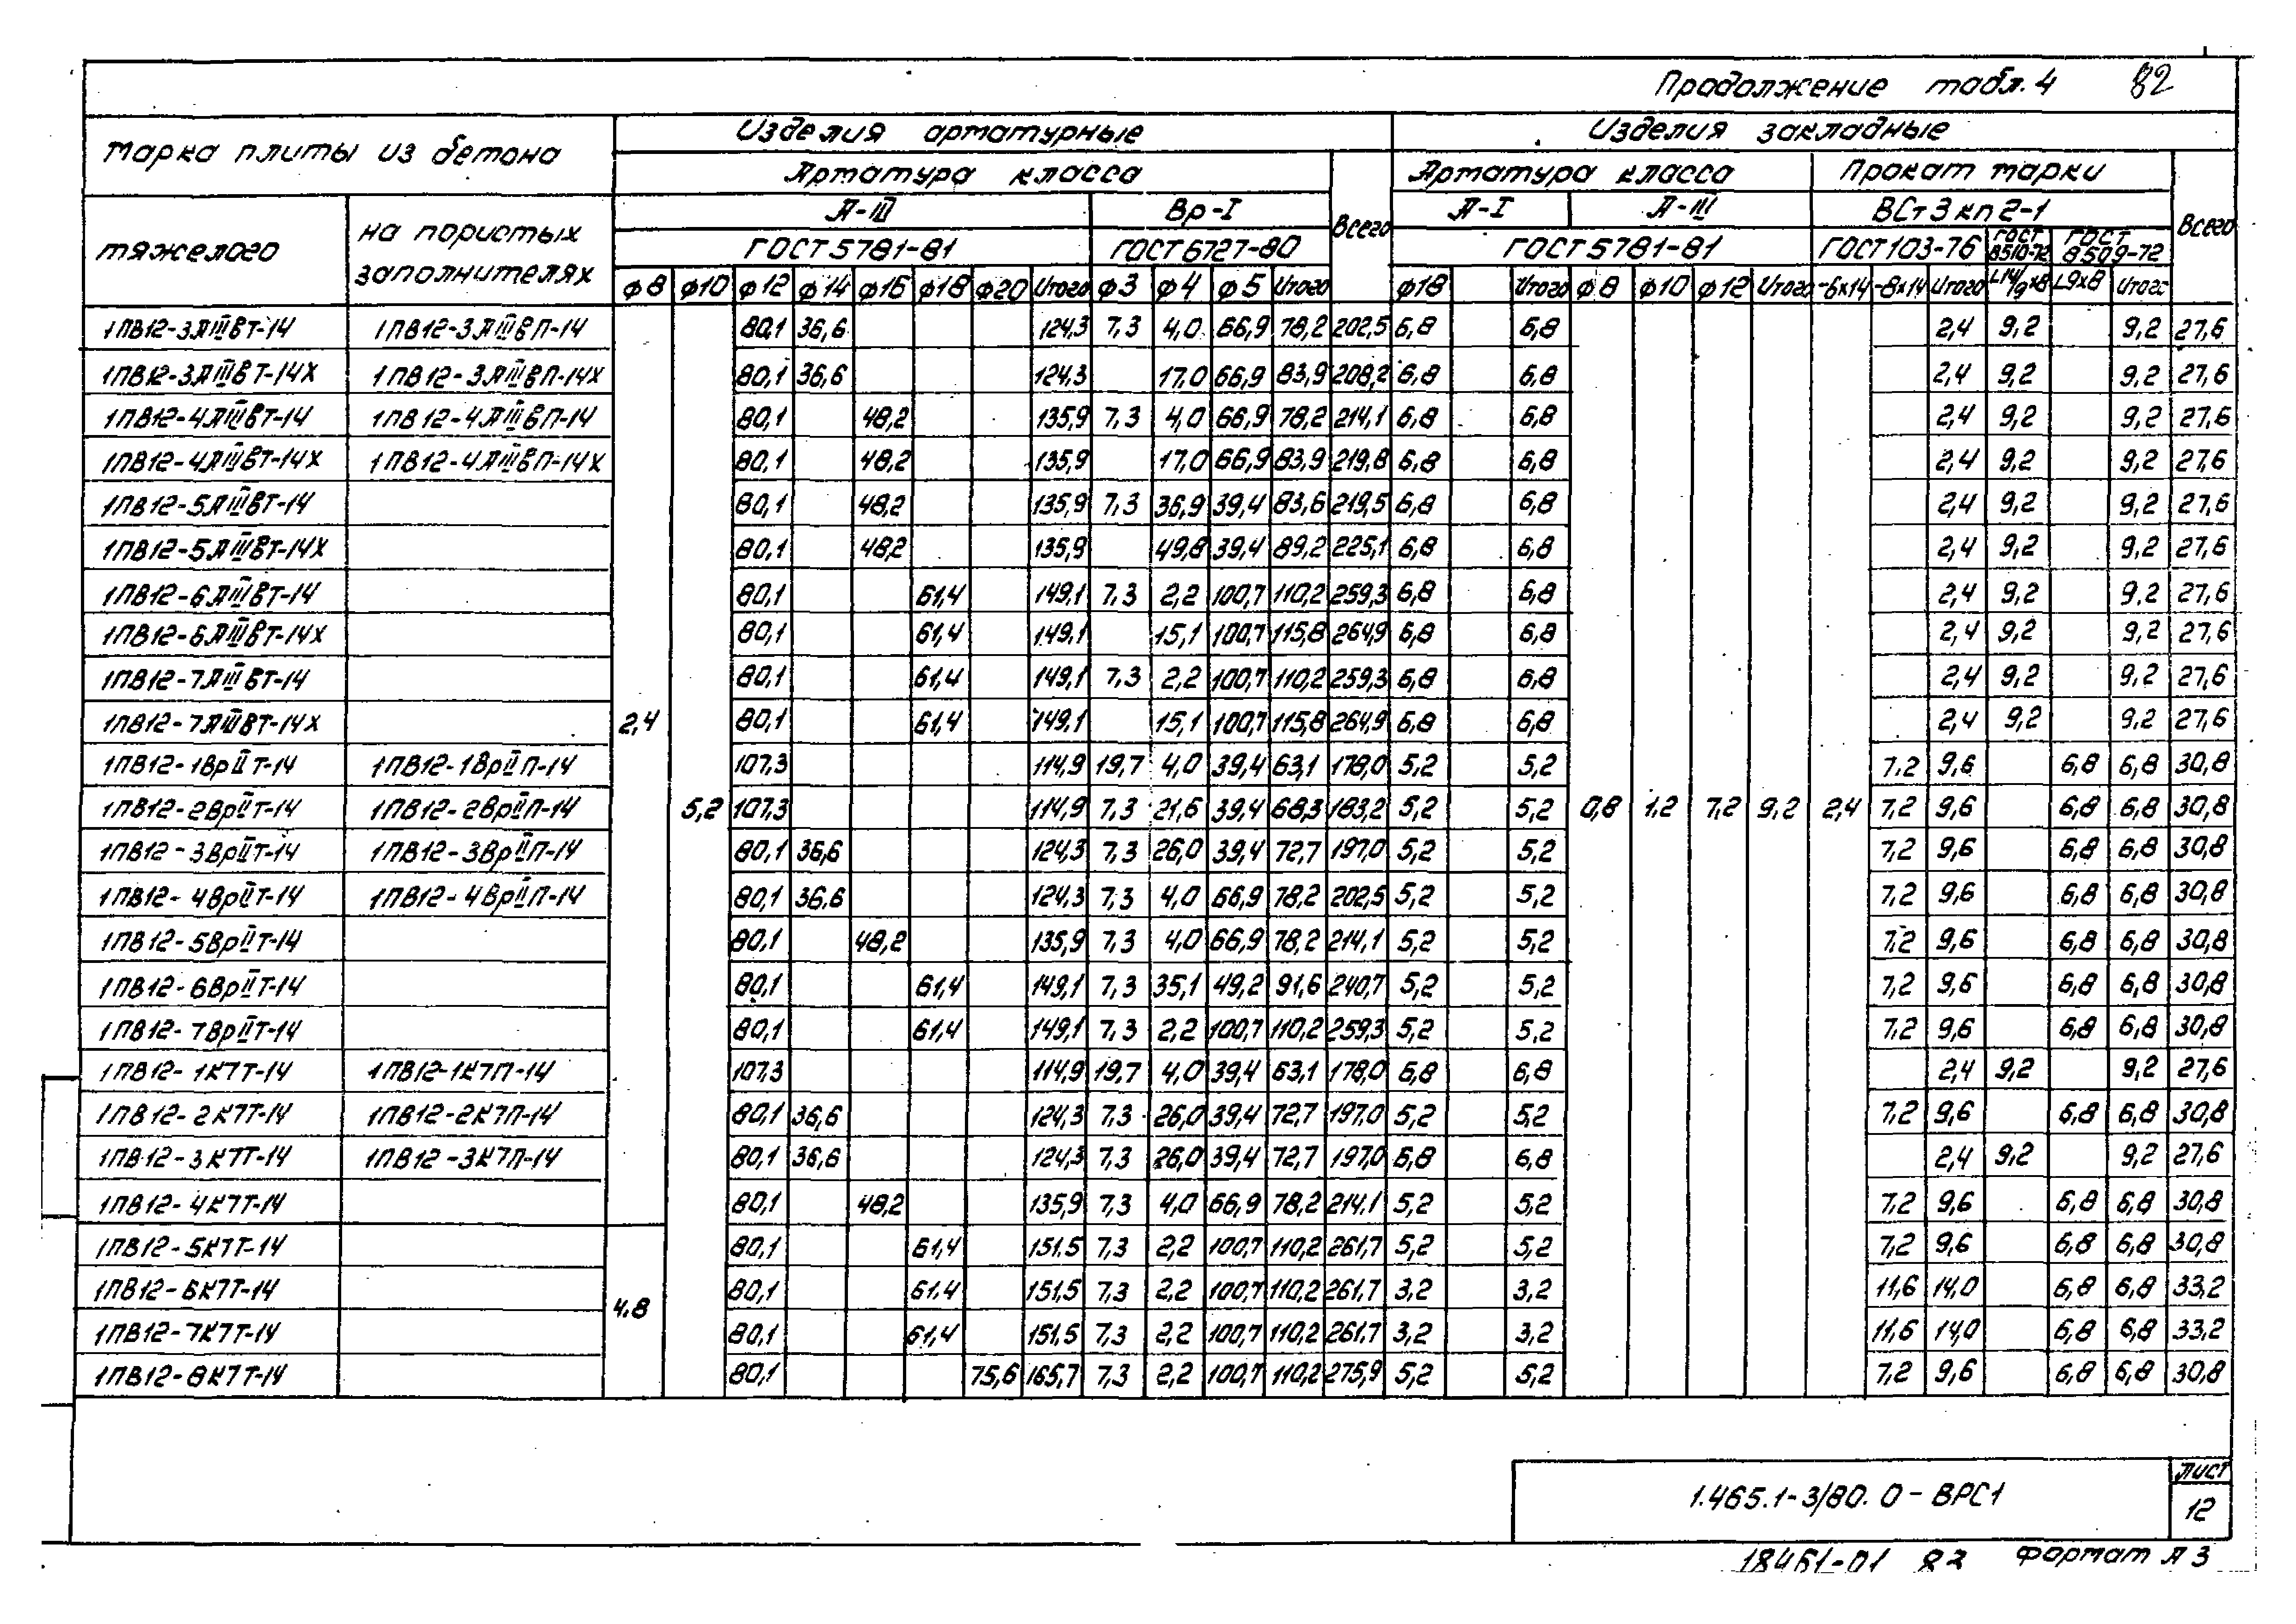 Продолжение табл. 4 82
Марка плиты из бетона Изделия арматурные Изделия закладные
Арматура класса Всего Арматура класса Прокат марки Всего
тяжелого на пористых заполнителях А-III Вр-I А-I А-III ВСт3кп2-1
ГОСТ 5781-81 ГОСТ 6727-80 ГОСТ 5781-81 ГОСТ 103-76 ГОСТ 8510-72 ГОСТ 8509-72
ф8 ф10 ф12 ф14 ф16 ф18 ф20 Итого ф3 ф4 ф5 Итого ф18 Итого ф8 ф10 ф12 Итого -6х14 -8х14 Итого L14/9х8 L9х8 Итого
1ПВ12-3АIIIвТ-14 1ПВ12-3АIIIвП-14 80,1 36,6 124,3 7,3 4,0 66,9 78,2 202,5 6,8 6,8 2,4 9,2 9,2 27,6
1ПВ12-3АIIIвТ-14х 1ПВ12-3АIIIвП-14х 80,1 36,6 124,3 17,0 66,9 83,9 208,2 6,8 6,8 2,4 9,2 9,2 27,6
1ПВ12-4АIIIвТ-14 1ПВ12-4АIIIвП-14 80,1 48,2 135,9 7,3 4,0 66,9 78,2 214,1 6,8 6,8 2,4 9,2 9,2 27,6
1ПВ12-4АIIIвТ-14х 1ПВ12-4АIIIвП-14х 80,1 48,2 135,9 17,0 66,9 83,9 219,8 6,8 6,8 2,4 9,2 9,2 27,6
1ПВ12-5АIIIвТ-14 80,1 48,2 135,9 7,3 36,9 39,4 83,6 219,5 6,8 6,8 2,4 9,2 9,2 27,6
1ПВ12-5АIIIвТ-14х 80,1 48,2 135,9 49,8 39,4 89,2 225,1 6,8 6,8 2,4 9,2 9,2 27,6
1ПВ12-6АIIIвТ-14 80,1 61,4 149,1 7,3 2,2 100,7 110,2 259,3 6,8 6,8 2,4 9,2 9,2 27,6
1ПВ12-6АIIIвТ-14х 80,1 61,4 149,1 15,1 100,7 115,8 264,9 6,8 6,8 2,4 9,2 9,2 27,6
1ПВ12-7АIIIвТ-14 80,1 61,4 149,1 7,3 2,2 100,7 110,2 259,3 6,8 6,8 2,4 9,2 9,2 27,6
1ПВ12-7АIIIвТ-14х 2,4 80,1 61,4 149,1 15,1 100,7 115,8 264,9 6,8 6,8 2,4 9,2 9,2 27,6
1ПВ12-1ВрIIТ-14 1ПВ12-1ВрIIП-14 107,3 114,9 19,7 4,0 39,4 63,1 178,0 5,2 5,2 7,2 9,6 6,8 6,8 30,8
1ПВ12-2ВрIIТ-14 1ПВ12-2ВрIIП-14 5,2 107,3 114,9 7,3 21,6 39,4 68,3 183,2 5,2 5,2 0,8 1,2 7,2 9,2 2,4 7,2 9,6 6,8 6,8 30,8
1ПВ12-3ВрIIТ-14 1ПВ12-3ВрIIП-14 80,1 36,6 124,3 7,3 26,0 39,4 72,7 197,0 5,2 5,2 7,2 9,6 6,8 6,8 30,8
1ПВ12-4ВрIIТ-14 1ПВ12-4ВрIIП-14 80,1 36,6 124,3 7,3 4,0 66,9 78,2 202,5 5,2 5,2 7,2 9,6 6,8 6,8 30,8
1ПВ12-5ВрIIТ-14 80,1 48,2 135,9 7,3 4,0 66,9 78,2 214,1 5,2 5,2 7,2 9,6 6,8 6,8 30,8
1ПВ12-6ВрIIТ-14 80,1 61,4 149,1 7,3 35,1 49,2 91,6 240,7 5,2 5,2 7,2 9,6 6,8 6,8 30,8
1ПВ12-7ВрIIТ-14 80,1 61,4 149,1 7,3 2,2 100,7 110,2 259,3 5,2 5,2 7,2 9,6 6,8 6,8 30,8
1ПВ12-1К7Т-14 1ПВ12-1К7П-14 107,3 114,9 19,7 4,0 39,4 63,1 178,0 6,8 6,8 2,4 9,2 9,2 27,6
1ПВ12-2К7Т-14 1ПВ12-2К7П-14 80,1 36,6 124,3 7,3 26,0 39,4 72,7 197,0 5,2 5,2 7,2 9,6 6,8 6,8 30,8
1ПВ12-3К7Т-14 1ПВ12-3К7П-14 80,1 36,6 124,3 7,3 26,0 39,4 72,7 197,0 6,8 6,8 2,4 9,2 9,2 27,6
1ПВ12-4К7Т-14 80,1 48,2 135,9 7,3 4,0 66,9 78,2 214,1 5,2 5,2 7,2 9,6 6,8 6,8 30,8
1ПВ12-5К7Т-14 80,1 61,4 151,5 7,3 2,2 100,7 110,2 261,7 5,2 5,2 7,2 9,6 6,8 6,8 30,8
1ПВ12-6К7Т-14 4,8 80,1 61,4 151,5 7,3 2,2 100,7 110,2 261,7 3,2 3,2 11,6 14,0 6,8 6,8 33,2
1ПВ12-7К7Т-14 80,1 61,4 151,5 7,3 2,2 100,7 110,2 261,7 3,2 3,2 11,6 14,0 6,8 6,8 33,2
1ПВ12-8К7Т-14 80,1 75,6 165,7 7,3 2,2 100,7 110,2 275,9 5,2 5,2 7,2 9,6 6,8 6,8 30,8
1.465.1-3/80. 0 - ВРС1
Лист
12
18461-01 83 Формат А3